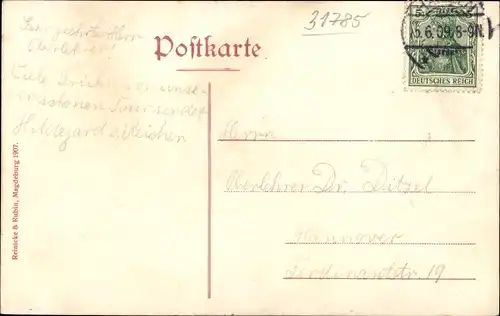 31785
Sehr geehrter Herr
Oberlehrer!
Postkarte
5.6.09.8-9N.
DEUTSCHES REICH
Viele Grüße von unse-
Hildegard
Reinicke & Rubin, Magdeburg 1907.
Herrn
Oberlehrer Dr. Ditzel
Hannover
Ferdinandstr. 19